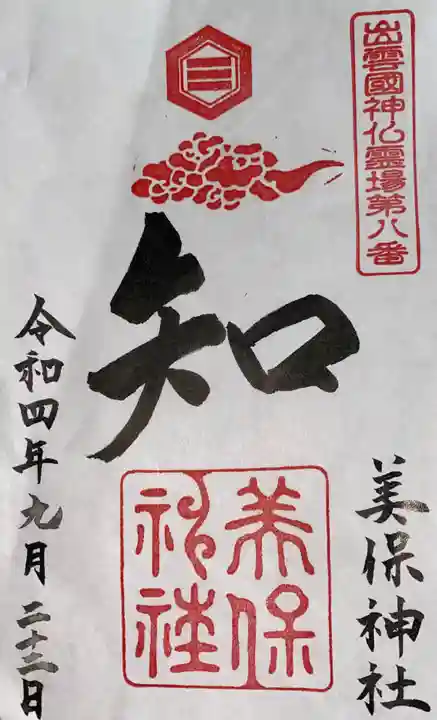 出雲國神仏霊場第八番
美保神社
知
美保神社
令和四年九月二十二日